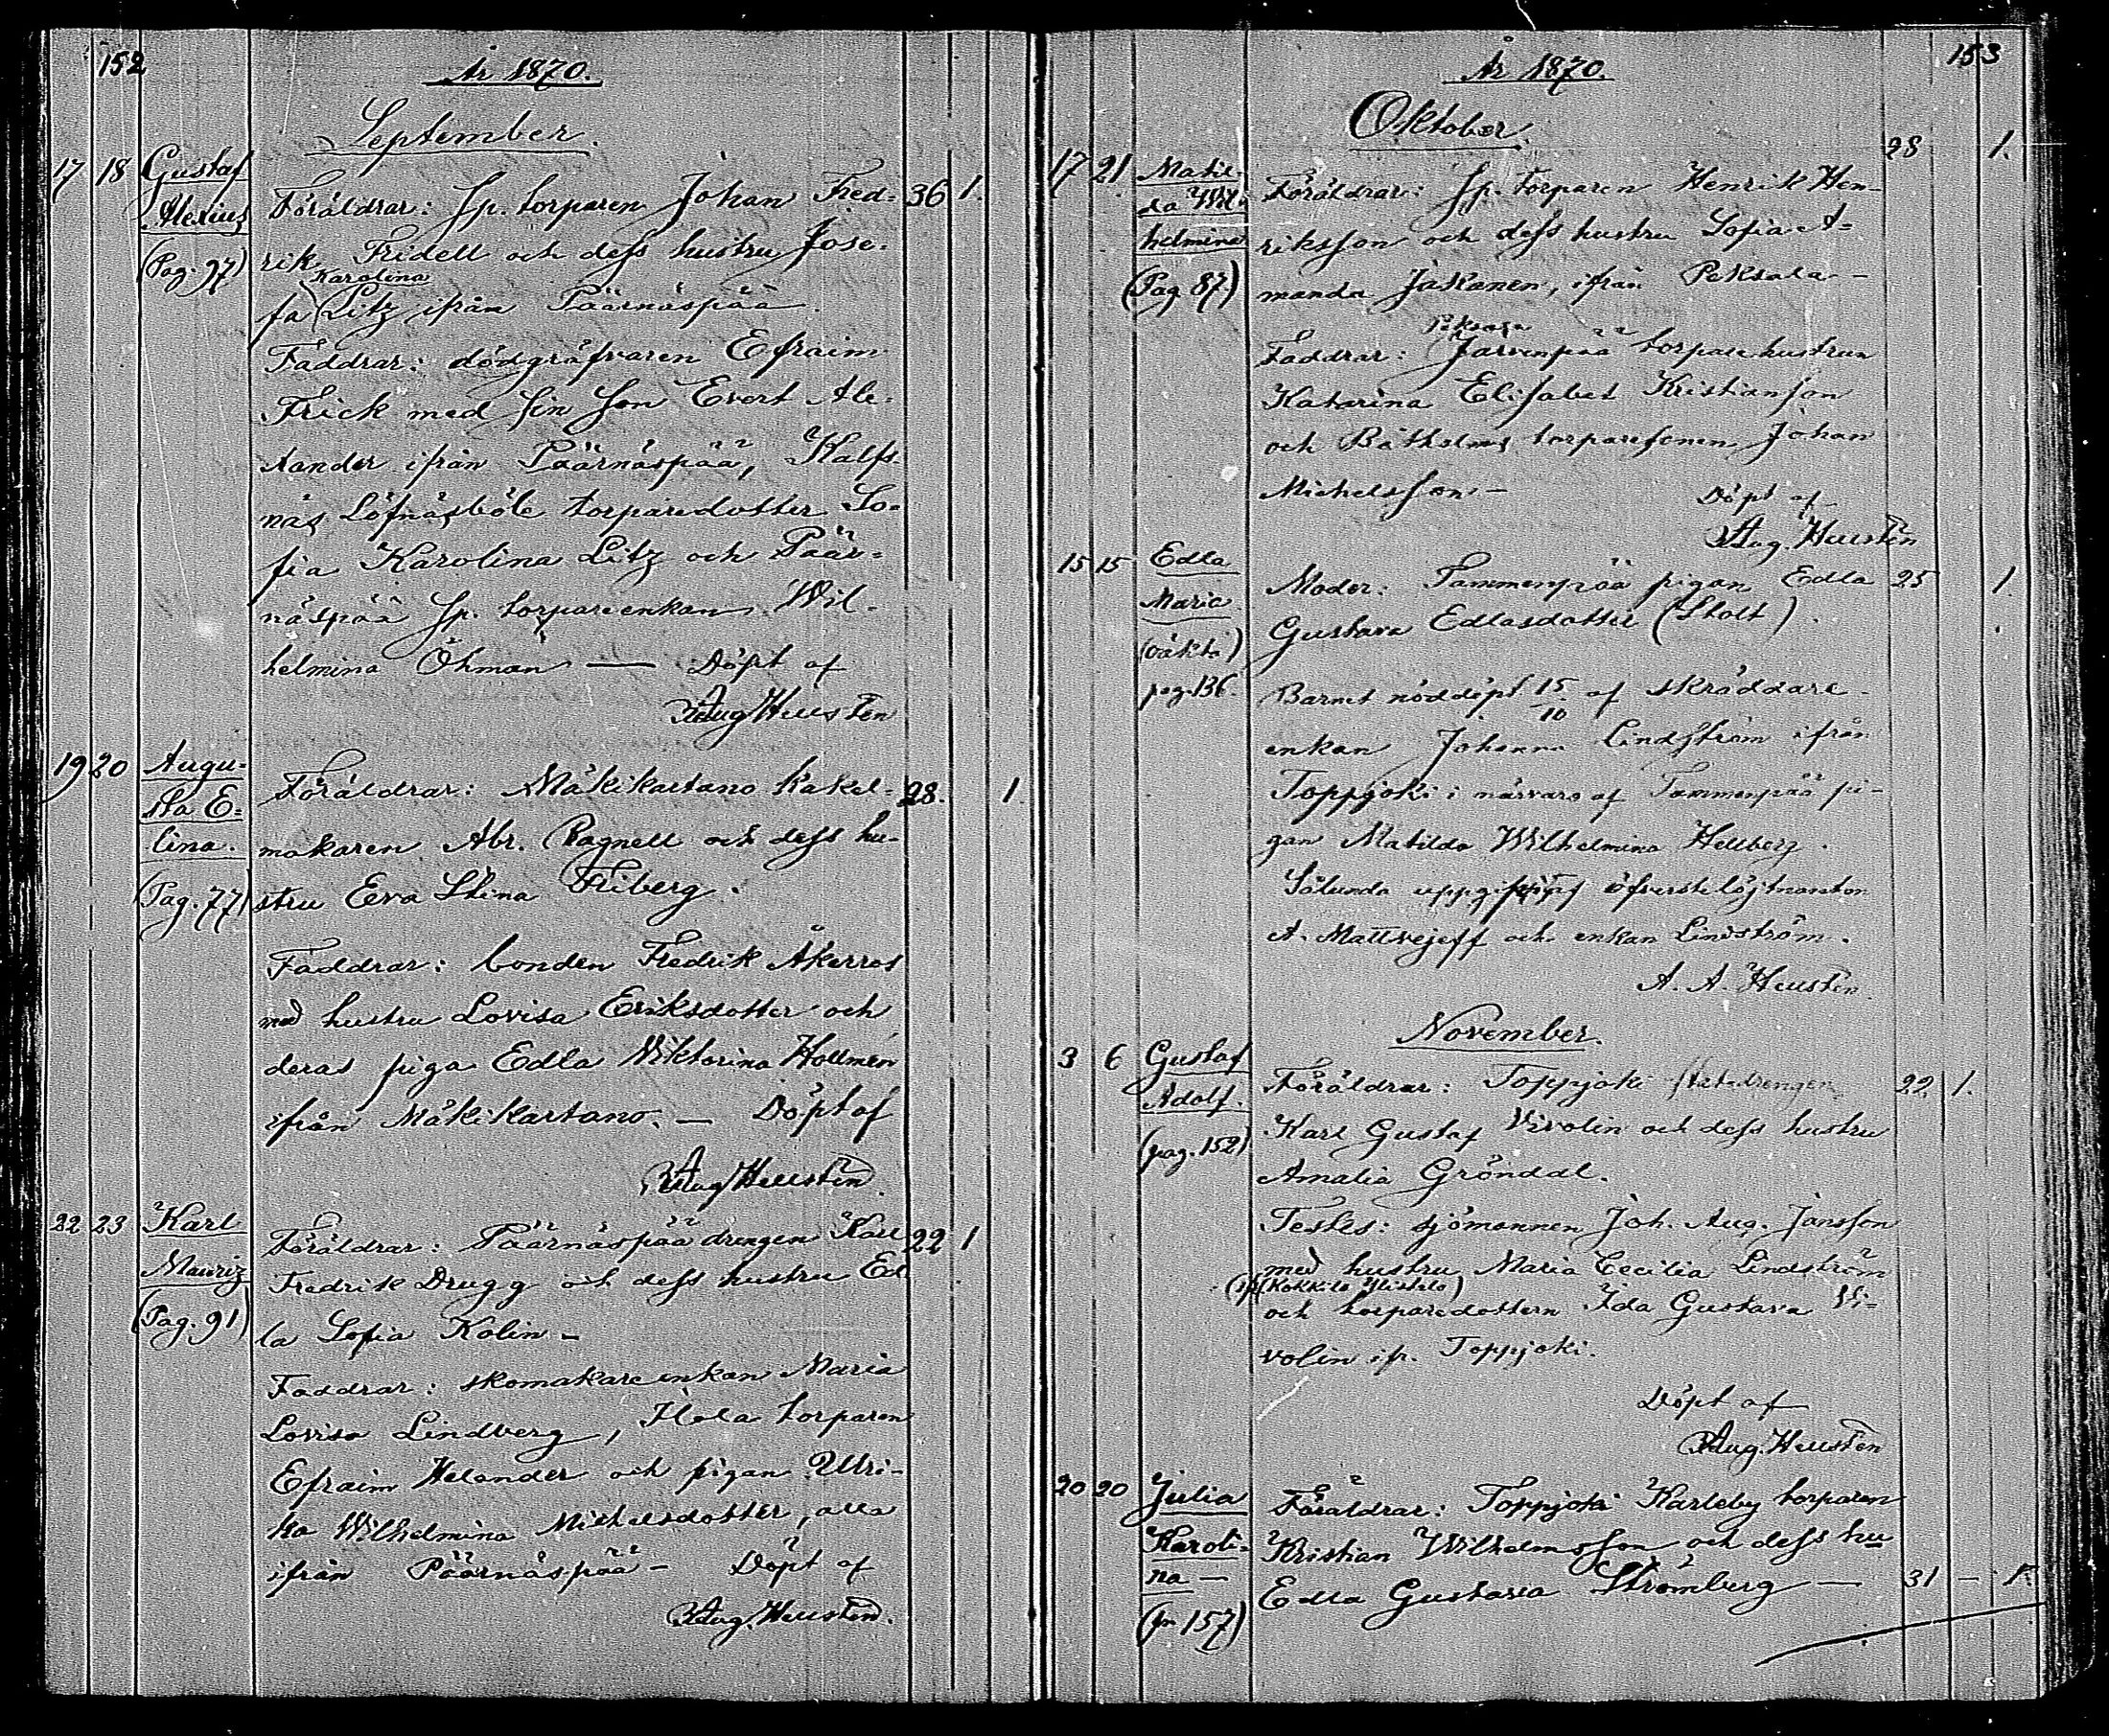 152
År 1870.
September.
17 18 Gustaf
Alexius Föräldrar: Sp. torparen Johan Fred- 36 1.
(Pag. 97) rik Fridell och dess hustru Jose-
Karolina
fa Litz ifrån Päärnäspää.
Faddrar: dödgräfvaren Efraim
Frick med sin son Evert Ale-
xander ifrån Päärnäspää, Kalfs-
näs Löfnäsböle torparedotter So-
fia Karolina Litz och Päär-
näspää Sp. torpareenkan Wil-
helmina Öhman — Döpt af
Aug Heusten
19 20 Augu-
sta E- Föräldrar: Mäkikartano kakel- 28. 1.
lina. makaren Abr. Pagnell och dess hu-
(Pag. 77) stru Eva Stina Friberg.
Faddrar: bonden Fredrik Åkerros
med hustru Lovisa Eriksdotter och
deras piga Edla Viktorina Hollmén
ifrån Mäkikartano. — Döpt af
Aug Heusten
22 23 Karl
Föräldrar: Päärnäspää drengen Karl 22 1
Mauriz Fredrik Drugg och dess hustru Ed-
(Pag. 91) la Sofia Kolin –
Faddrar: skomakareenkan Maria
Lovisa Lindberg, torparen
Efraim Helander och pigan Ulri-
ka Wilhelmina Michelsdotter, alla
ifrån Päärnäspää – Döpt af
Aug. Heusten.
153
År 1870.
Oktober.
28 1.
17 21 Matil-
da Wil- Föräldrar: Sp. torparen Henrik Hen-
helmina riksson och dess hustru Sofia A-
(Pag 87) manda Jakanen, ifrån Peksala –
Faddrar: Järvenpää torparehustrun
Katarina Elisabet Kristianson
och Båtholms torparesonen Johan
Michelsson – Döpt af
Aug. Heusten
15 15 Edla Moder: Tammenpää pigan Edla 25 1.
Maria Gustava Edlasdotter (Stolt).
(oäkta)
pag. 136. Barnet nöddöpt 15/10 af skräddare-
enkan Johanna Lindström ifrån
Toppjoki i närvaro af Tammenpää pi-
gan Matilda Wilhelmina Hellberg.
Sålunda uppgifvit öfverstelöjtnantn
A. Mattvejeff och enkan Lindström.
A. A. Heusten.
November.
3 6 Gustaf Föräldrar: Toppjoki statdrengen 22. 1.
Adolf. Karl Gustaf Vivolin och dess hustru
(pag. 152) Amalia Gröndal.
Testes: sjömannen Joh. Aug. Jansson
med hustru Maria Cecilia Lindström
och torparedottern Ida Gustava Vi-
volin ifr. Toppjoki.
Döpt af
Aug. Heusten
20 20 Julia Föräldrar: Toppjoki Karleby torparen
Karoli- Kristian Wilhelmsson och dess hu
na – Edla Gustava Strömberg — 31 – 1.
(p. 157)